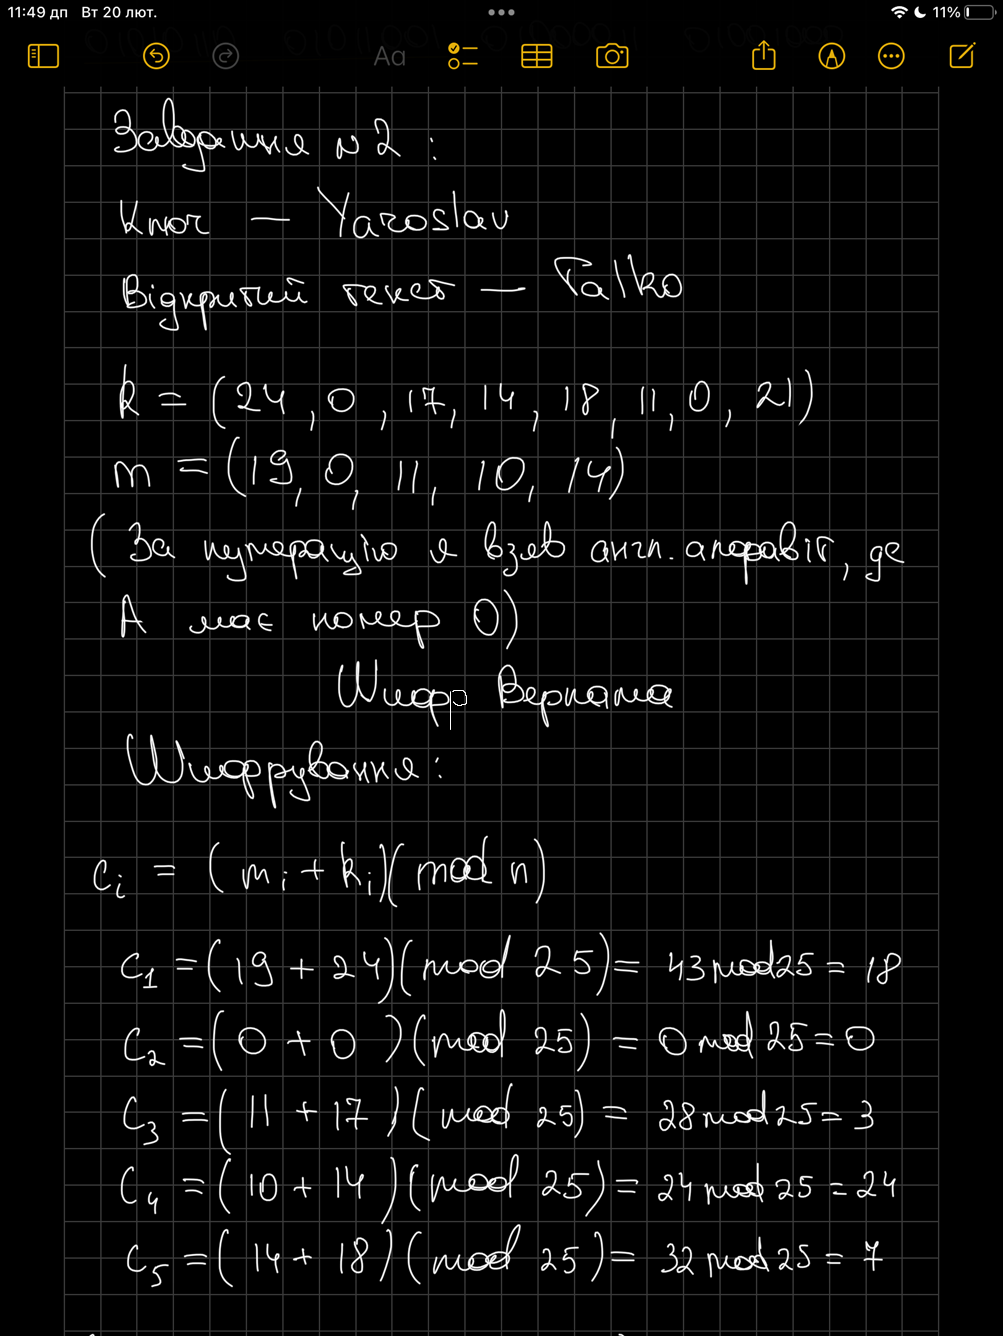 11:49 дп Вт 20 лют. 11%
Aa
Завдання N2:
Ключ — Yaroslav
Відкритий текст — Talko
k = (24, 0, 17, 14, 18, 11, 0, 21)
m = (19, 0, 11, 10, 14)
(За нумерацію я взяв англ. алфавіт, де
А має номер 0)
Шифр Вернама
Шифрування:
ci = (mi + ki)(mod n)
c1 = (19 + 24)(mod 25) = 43 mod 25 = 18
c2 = (0 + 0)(mod 25) = 0 mod 25 = 0
c3 = (11 + 17)(mod 25) = 28 mod 25 = 3
c4 = (10 + 14)(mod 25) = 24 mod 25 = 24
c5 = (14 + 18)(mod 25) = 32 mod 25 = 7